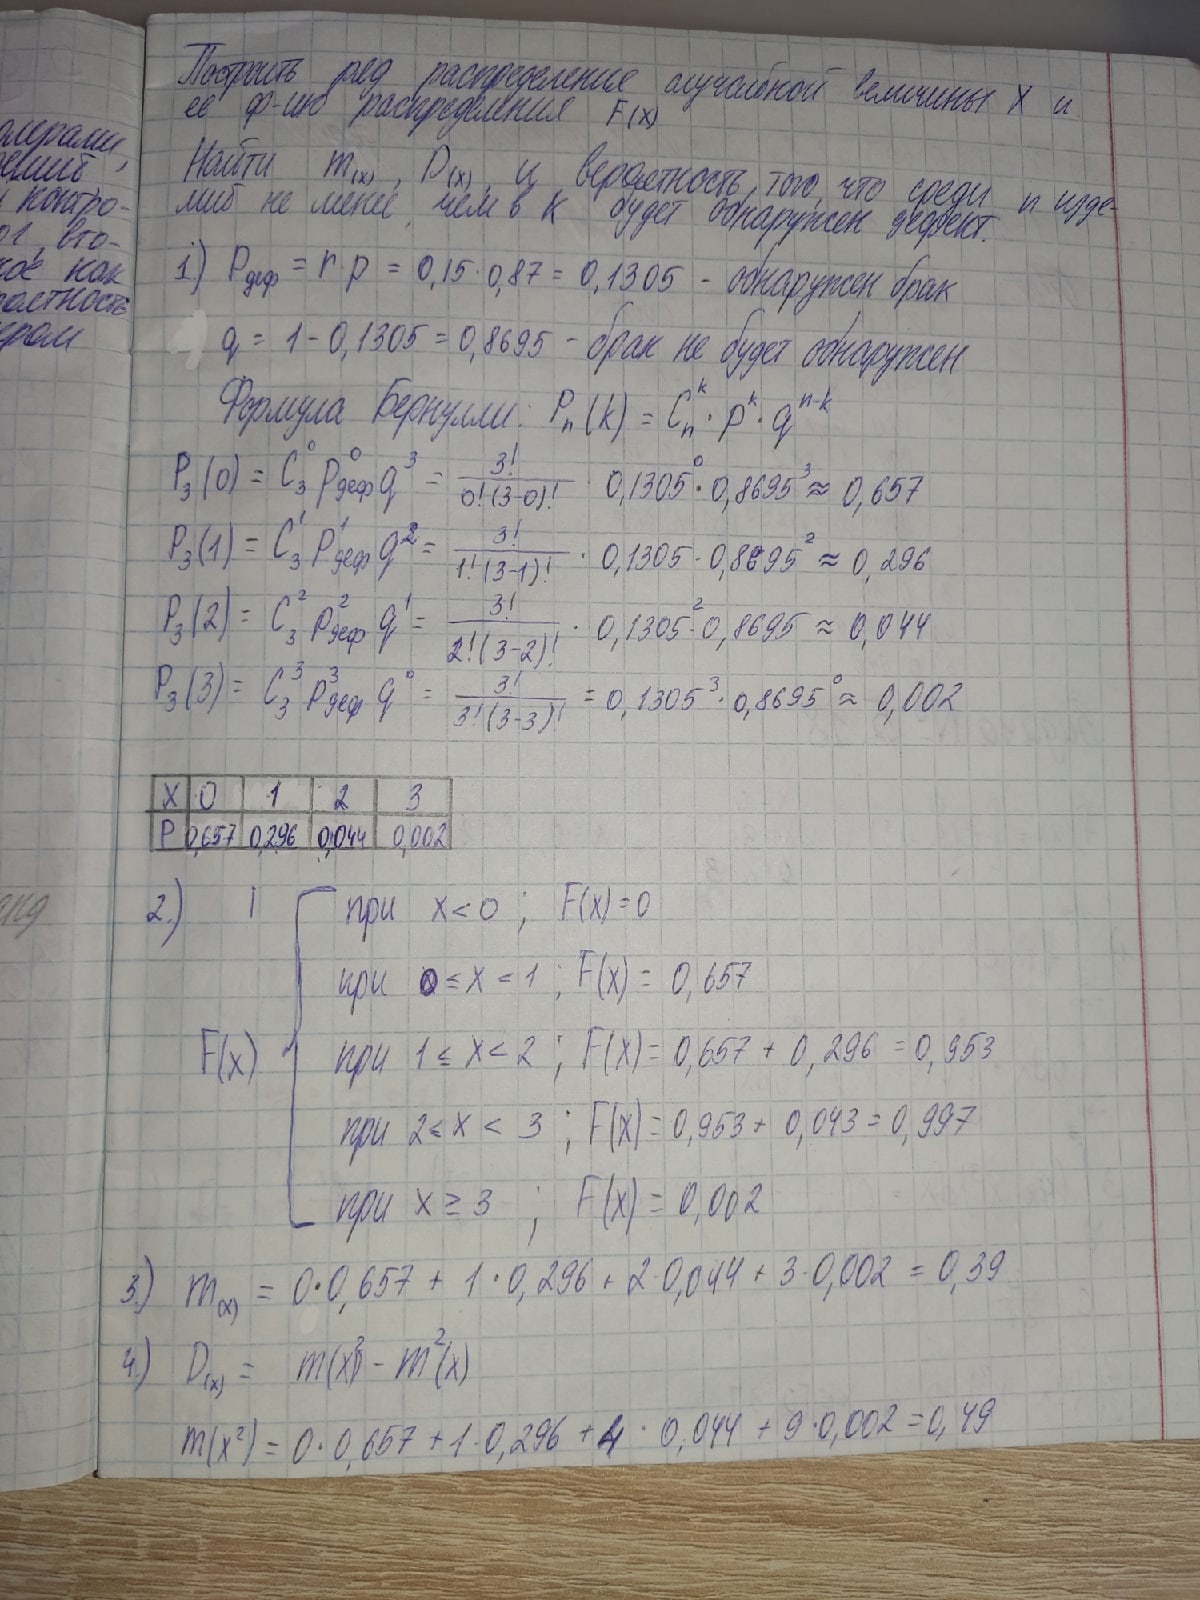 Построить ряд распределения случайной величины X и
её ф-ию распределения F(x)
Найти m(x), D(x), и вероятность того, что среди n изде-
лий не менее, чем в k будет обнаружен дефект.
1.) Pдеф = r·p = 0,15·0,87 = 0,1305 - обнаружен брак
q = 1 - 0,1305 = 0,8695 - брак не будет обнаружен
Формула Бернулли: Pₙ(k) = Cₙᵏ · pᵏ · qⁿ⁻ᵏ
P₃(0) = C₃⁰ P⁰деф q³ = 3!/0!(3-0)! · 0,1305⁰ · 0,8695³ ≈ 0,657
P₃(1) = C₃¹ P¹деф q² = 3!/1!(3-1)! · 0,1305 · 0,8695² ≈ 0,296
P₃(2) = C₃² P²деф q¹ = 3!/2!(3-2)! · 0,1305² · 0,8695 ≈ 0,044
P₃(3) = C₃³ P³деф q⁰ = 3!/3!(3-3)! = 0,1305³ · 0,8695⁰ ≈ 0,002
X 0 1 2 3
P 0,657 0,296 0,044 0,002
2.)
при x < 0 ; F(x) = 0
при 0 ≤ x < 1 ; F(x) = 0,657
F(x) при 1 ≤ x < 2 ; F(x) = 0,657 + 0,296 = 0,953
при 2 ≤ x < 3 ; F(x) = 0,953 + 0,043 = 0,997
при x ≥ 3 ; F(x) = 0,002
3.) m(x) = 0·0,657 + 1·0,296 + 2·0,044 + 3·0,002 = 0,39
4.) D(x) = m(x²) - m²(x)
m(x²) = 0·0,657 + 1·0,296 + 4·0,044 + 9·0,002 = 0,49